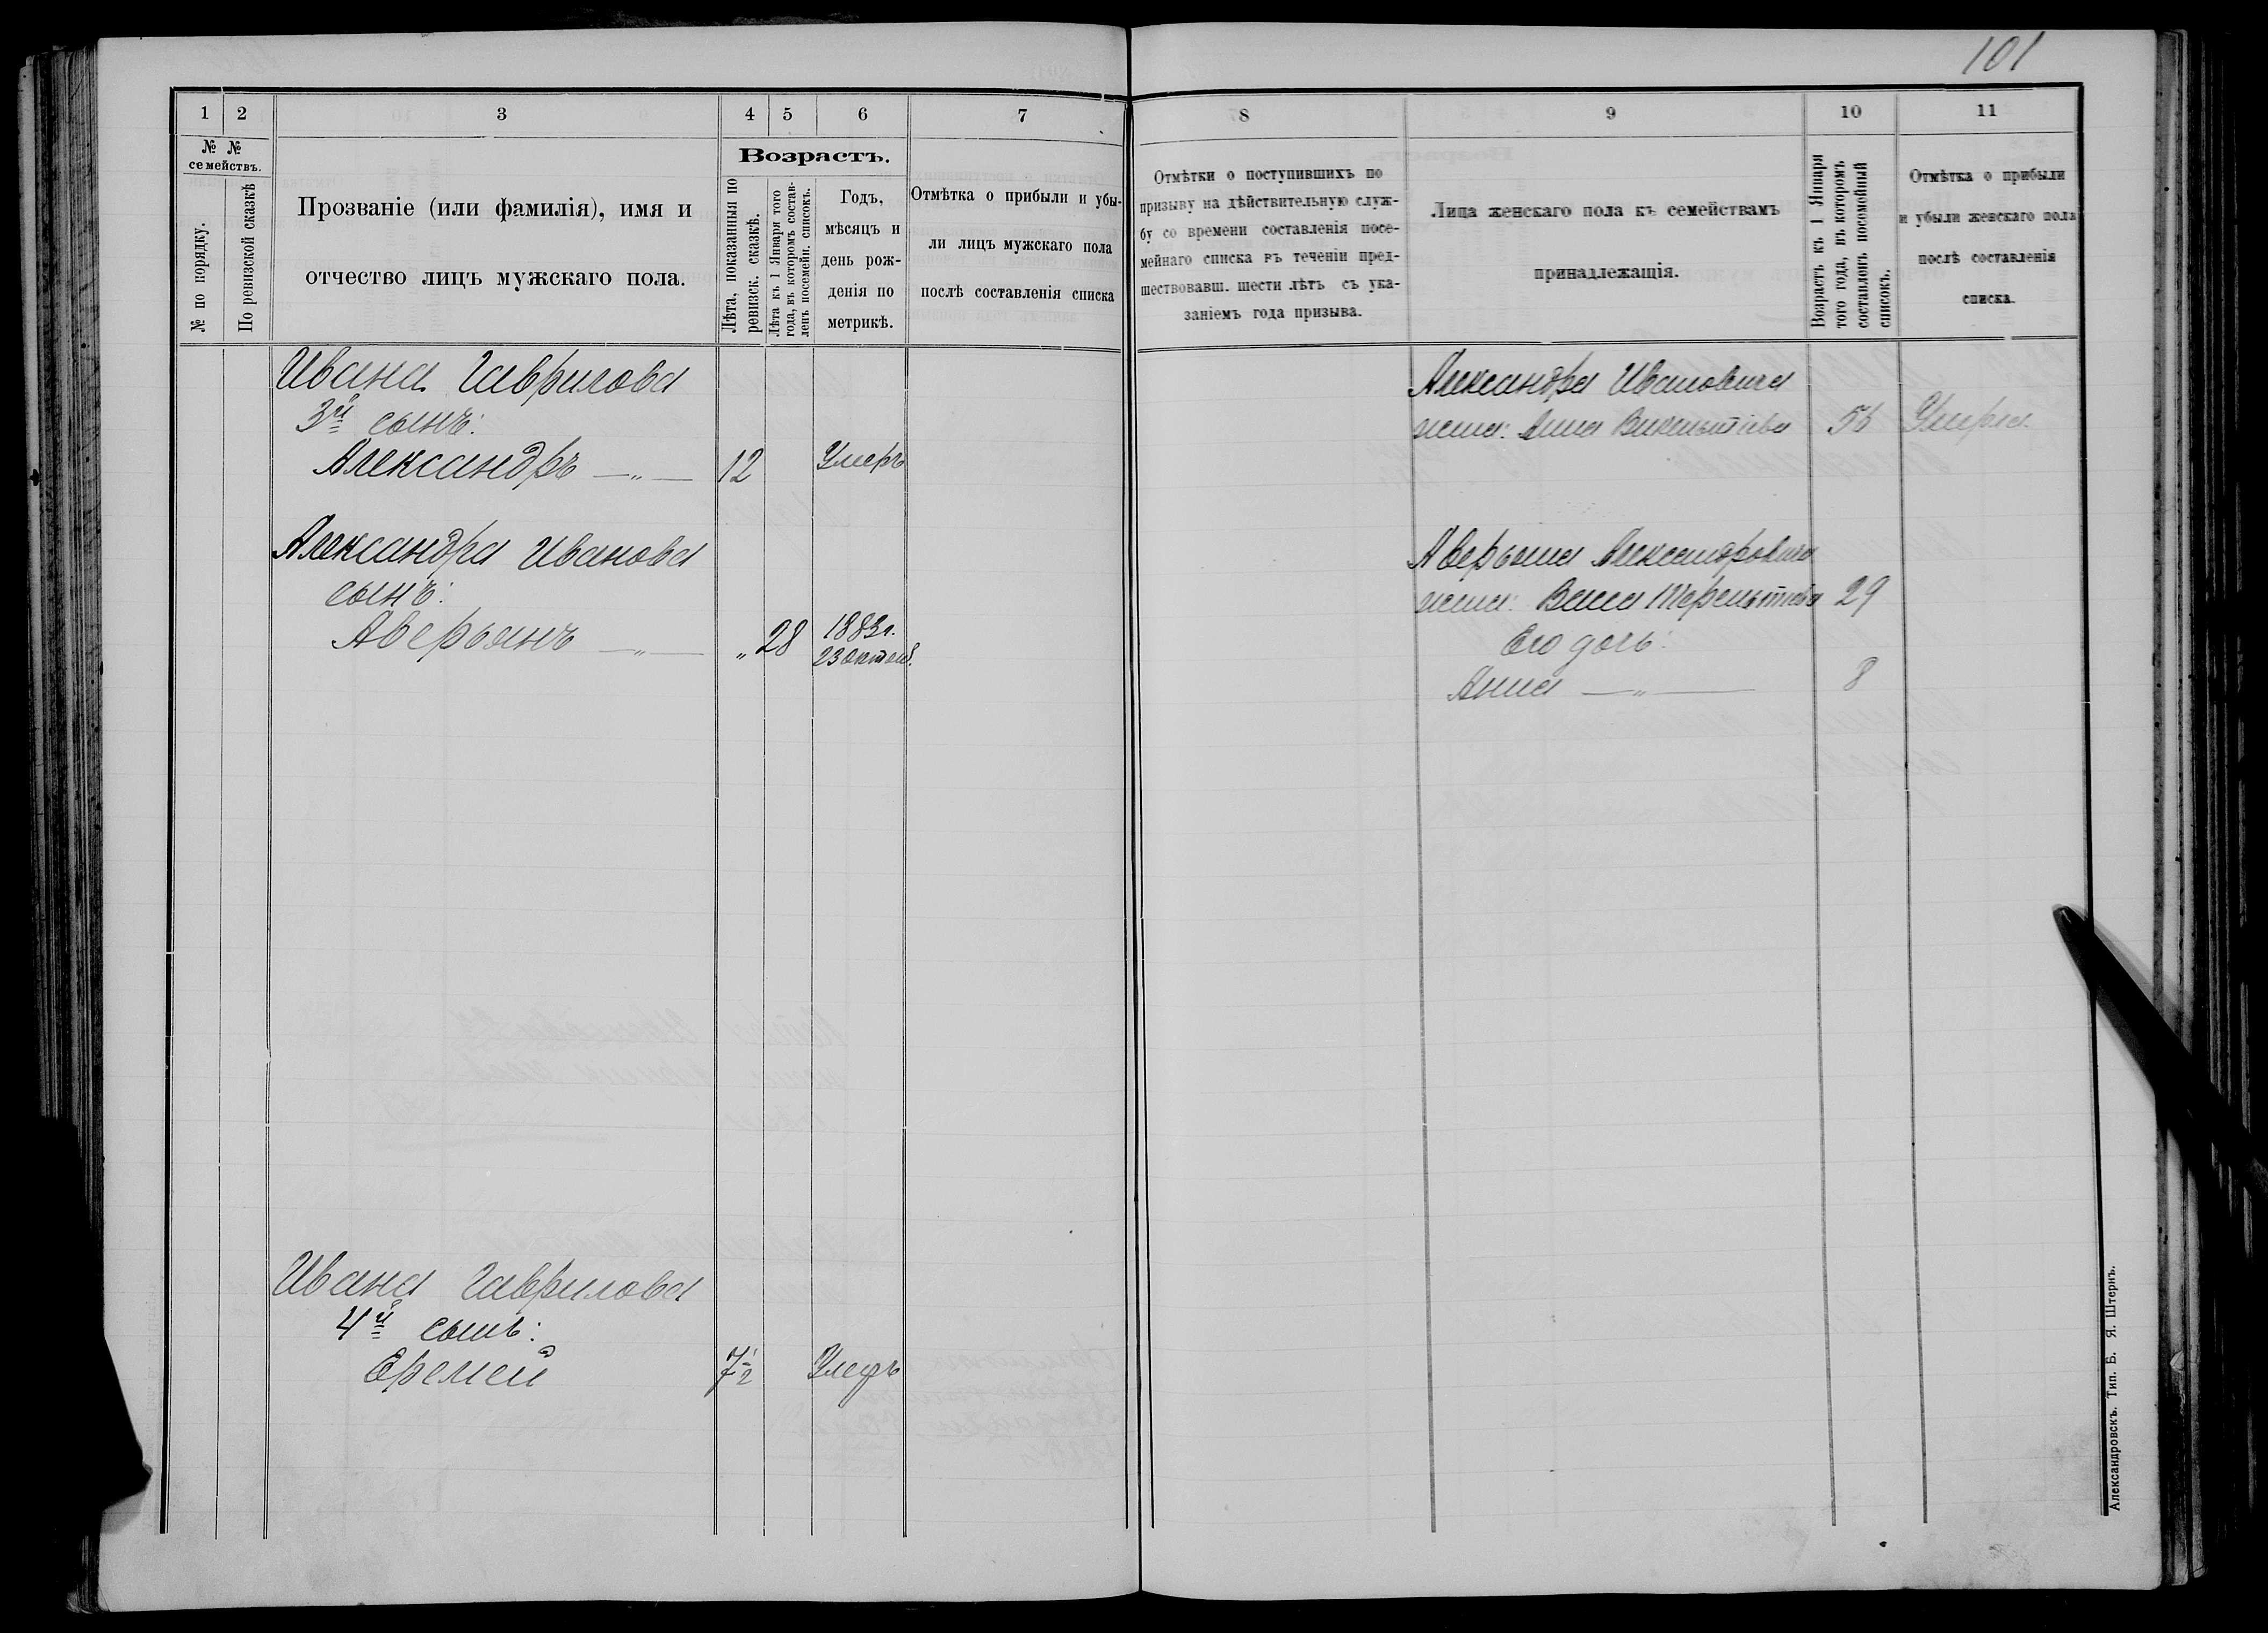 101
1 2 3 4 5 6 7
№ №
семействъ.
№ по порядку.
По ревизской сказкѣ
Прозваніе (или фамилія), имя и
отчество лицъ мужскаго пола.
Возрастъ.
Лѣта, показанныя по
ревизск. сказкѣ.
Лѣта къ 1 Января того
года, въ которомъ состав-
ленъ посемейн. списокъ.
Годъ,
мѣсяцъ и
день рож-
денія по
метрикѣ.
Отмѣтка о прибыли и убы-
ли лицъ мужскаго пола
послѣ составленія списка
Ивана Гаврилова
3й сынъ:
Александръ —„— 12 Умеръ
Александра Иванова
сынъ:
Аверьянъ —„— „ 28 1883г.
23 октяб.
Ивана Гаврилова
4й сынъ:
Еремей 7½ Умеръ
8 9 10 11
Отмѣтки о поступившихъ по
призыву на дѣйствительную служ-
бу со времени составленія посе-
мейнаго списка въ теченіи пред-
шествовавш. шести лѣтъ съ ука-
заніемъ года призыва.
Лица женскаго пола къ семействамъ
принадлежащія.
Возрастъ къ 1 Января
того года, въ которомъ
составленъ посемейный
списокъ.
Отмѣтка о прибыли
и убыли женскаго пола
послѣ составленія
списка.
Александра Ивановича
жена: Анна Викентьева Умерла
Аверьяна Александровича
жена: Васса Терентьева 29
Его дочь:
Анна —„— 8
Александровскъ. Тип. Б. Я. Штернъ.